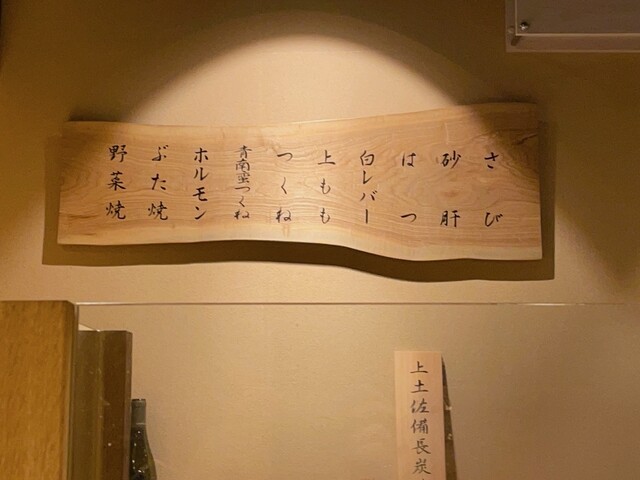 さび
砂肝
はつ
白レバー
上もも
つくね
青南蛮つくね
ホルモン
ぶた焼
野菜焼
上土佐備長炭